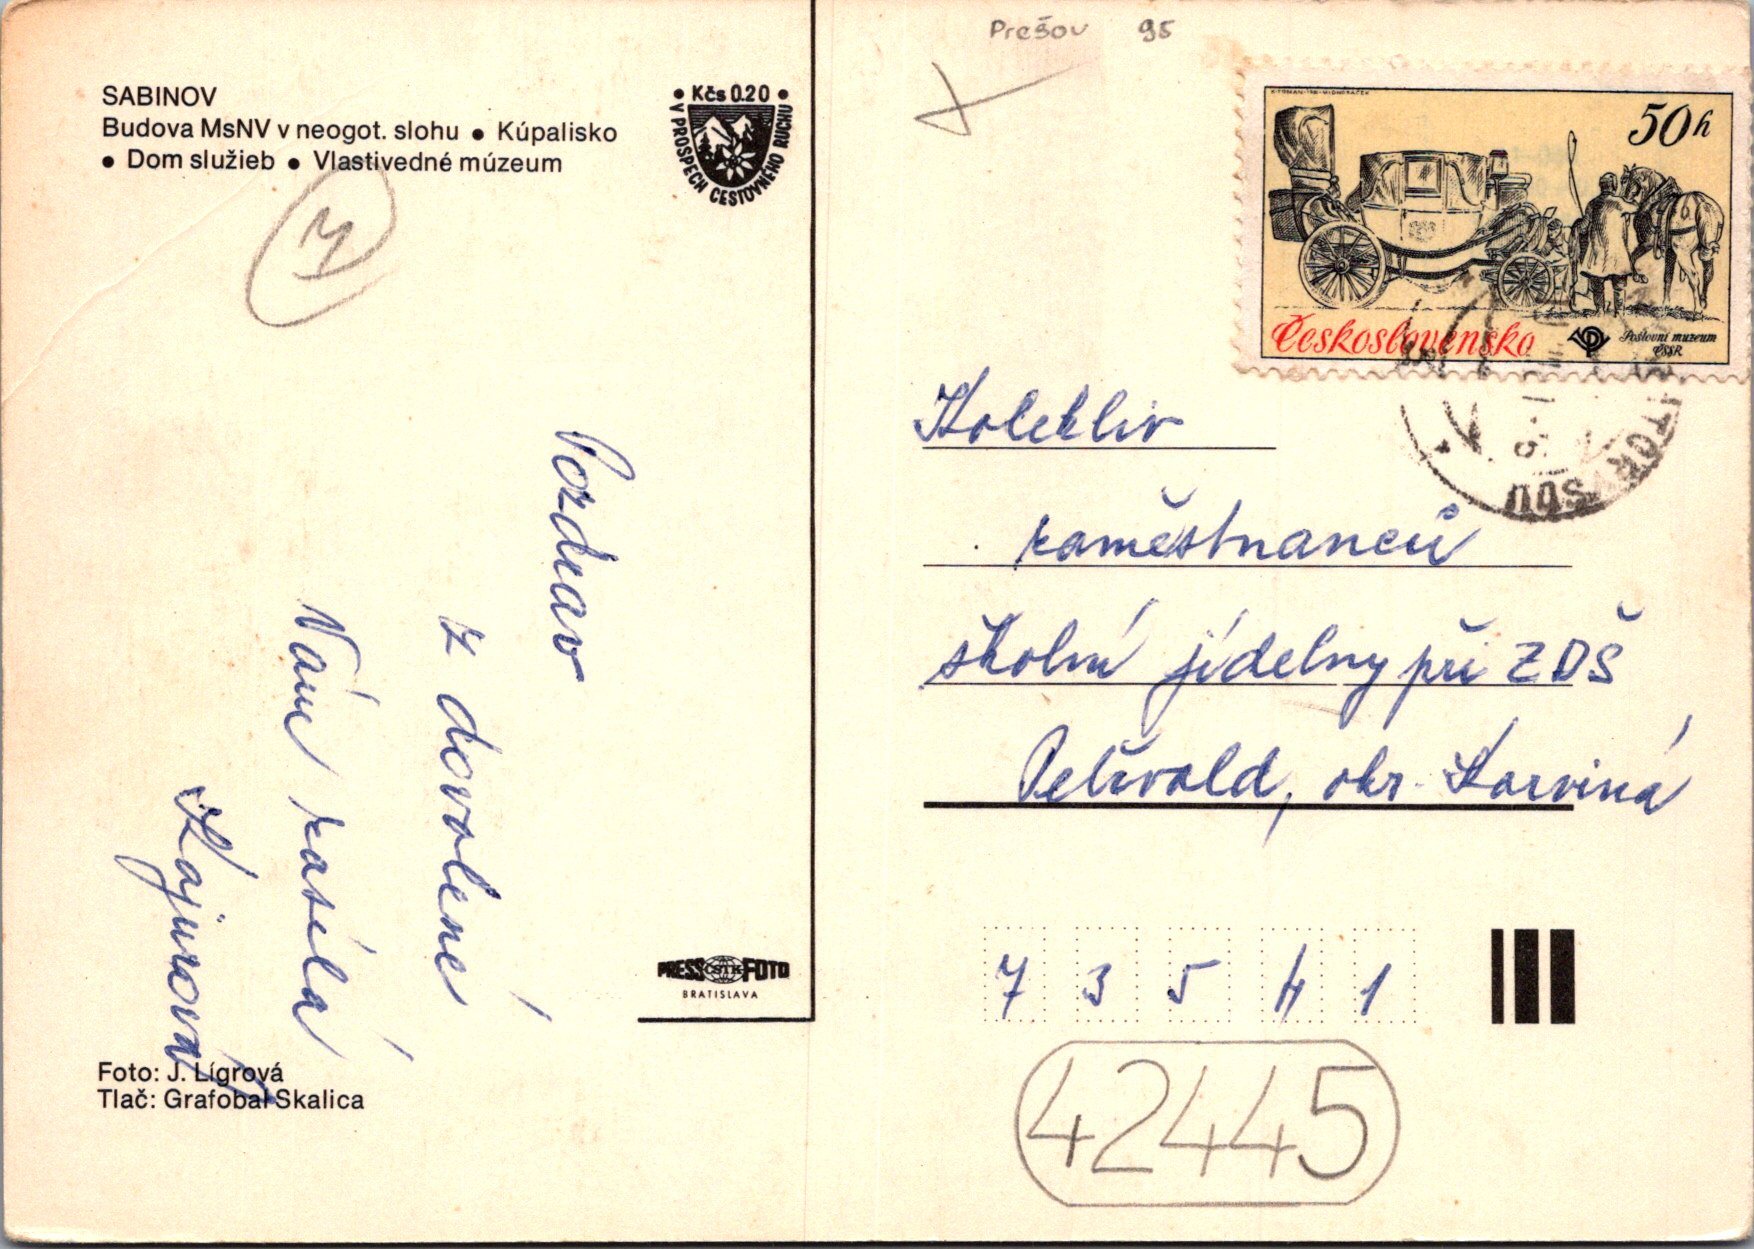 Prešov 95
SABINOV
Budova MsNV v neogot. slohu • Kúpalisko
• Dom služieb • Vlastivedné múzeum
• Kčs 0.20 •
V PROSPECH CESTOVNÉHO RUCHU
50h
Československo
Poštovní muzeum
ČSSR
Pozdrav
z dovolené
Vám zasílá
Kajurová
Kolektiv
zaměstnanců
školní jídelny při ZDŠ
Petřvald, okr. Karviná
PRESS ČSTK FOTO
BRATISLAVA
73541
Foto: J. Lígrová
Tlač: Grafobal Skalica
42445